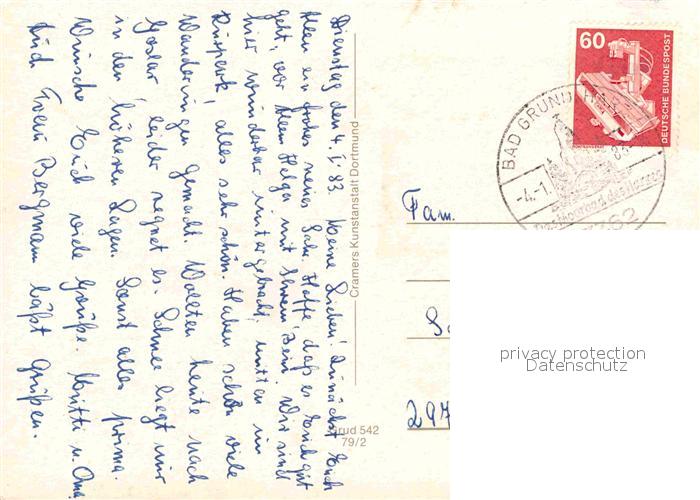 Dienstag den 4.I.83. Meine Lieben! Zunächst Euch
allen ein frohes neues Jahr. Hoffe, daß es Euch gut
geht, vor allem Helga mit ihrem Bein. Wir sind
hier wunderbar untergebracht, mitten im
Kurpark, alles sehr schön. Haben schon viele
Wanderungen gemacht. Wollten heute nach
Goslar, leider regnet es. Schnee liegt nur
in den höheren Lagen. Sonst alles prima.
Wünsche Euch viele Grüße. Mutti u. Oma
Auch Frau Bergmann läßt grüßen.
Cramers Kunstanstalt Dortmund
Grud 542
79/2
60
DEUTSCHE BUNDESPOST
BAD GRUND
-4.-1.
83
3362
Fam.
297
privacy protection
Datenschutz